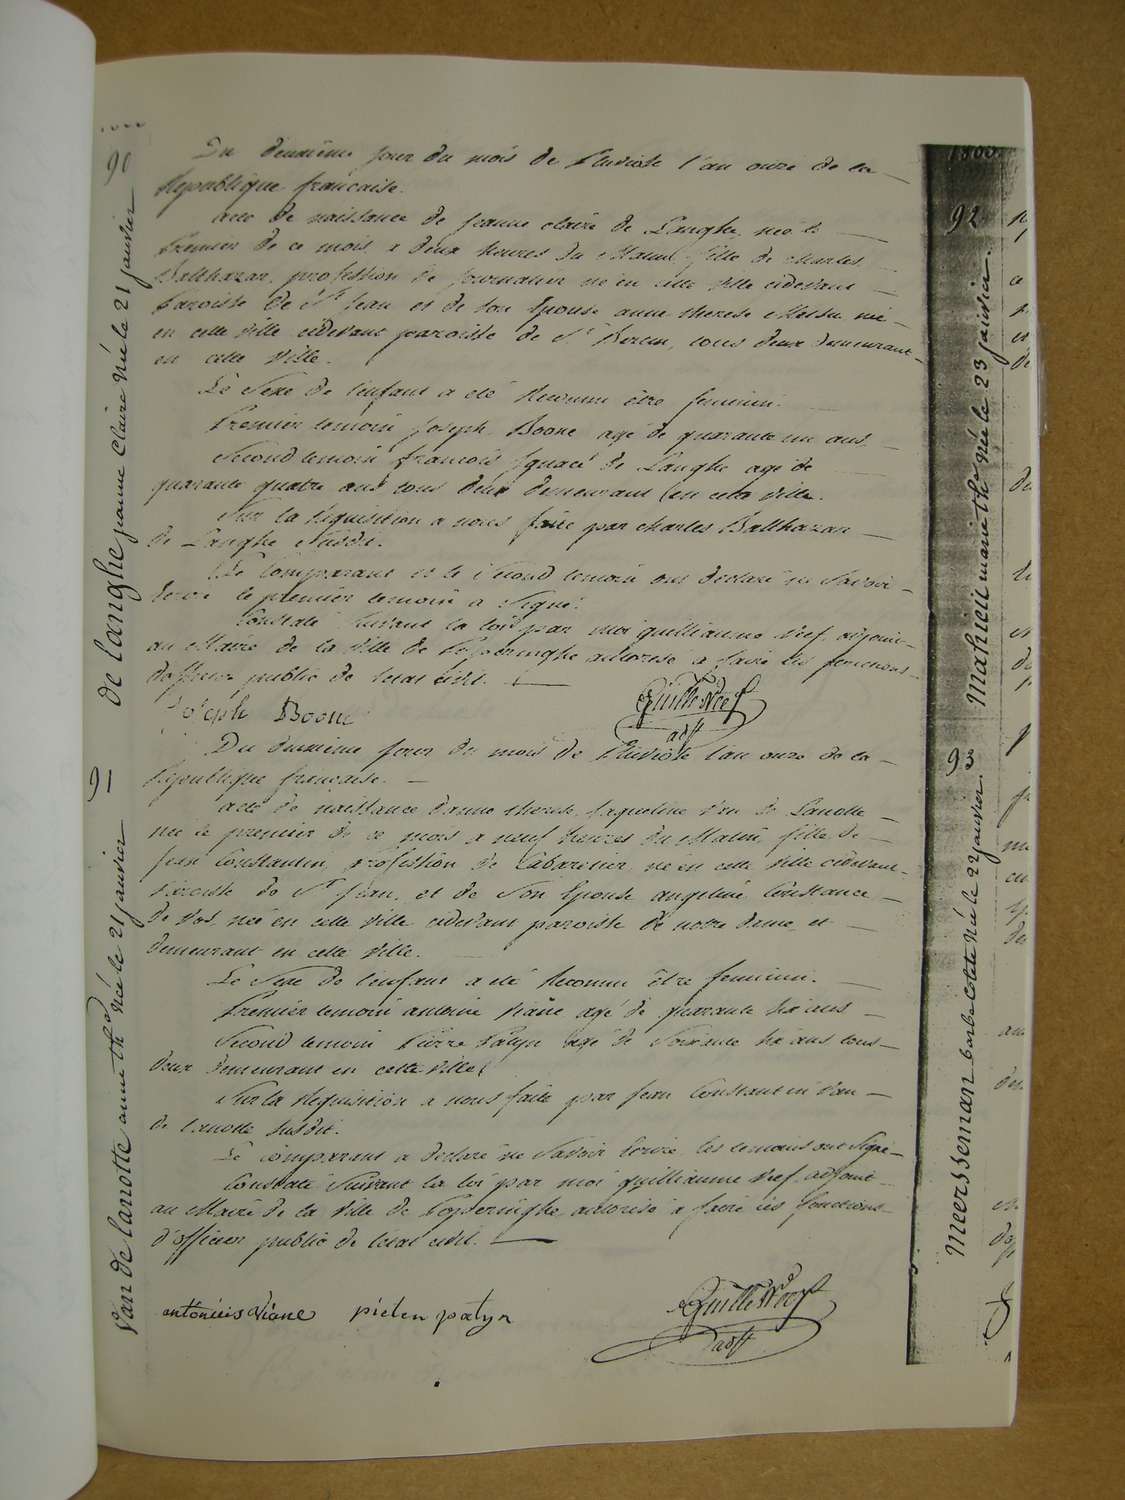 90
de langhe jeanne claire née le 21 janvier
Du deuxième jour du mois de Pluviose l'an onze de la
République française.
acte de naissance de jeanne claire de Langhe, née le
Premier de ce mois, a deux heures du Matin, fille de charles
Balthazar, profession de journalier né en cette ville cidevant
Paroisse de St jean et de son Epouse anne therese née
en cette ville cidevant paroisse de St Bertin, tous deux demeurant
en cette ville.
Le Sexe de l'enfant a été Reconnu être feminin.
Premier temoin Joseph Boone agé de quarante un ans
Second temoin francois Ignace de Langhe agé de
quarante quatre ans tous deux demeurant en cette ville.
Sur la Réquisition a nous faite par charles Balthazar
de Langhe susdit.
Le Comparant et le Second temoin ont declaré ne Savoir
Ecrire le premier temoin a Signé.
Constaté Suivant la loi par moi guilliaume Neef adjoint
au Maire de la ville de Poperinghe autorisé a faire les fonctions
d'officier public de l'etat civil.
Joseph Boone
Guille Neef
adjt
91
van de lanotte anne thé née le 21 janvier
Du deuxième jour du mois de Pluviose l'an onze de la
République française.
acte de naissance d'anne therese jaqueline Van de Lanotte
née le premier de ce mois a neuf heures du Matin, fille de
jean Constantin, profession de Cabaretier, né en cette ville cidevant
Paroisse de St jean, et de Son Epouse angeline Constance
de Vos, née en cette ville cidevant paroisse de notre dame, et
demeurant en cette ville.
Le Sexe de l'enfant a été Reconnu être feminin.
Premier temoin antoine Viane agé de quarante six ans
Second temoin Pierre Patyn agé de Soixante six ans tous
deux demeurant en cette ville
Sur la Requisition a nous faite par jean Constantin Van
de lanotte susdit.
Le comparant a declaré ne Savoir Ecrire, les temoins ont Signé
Constaté Suivant la loi par moi guilliaume Neef adjoint
au Maire de la ville de Poperinghe autorisé a faire les fonctions
d'officier public de l'etat civil.
antonius Viane pieter patyn
Guille Neef
adjt
1803
92
Mahieu marie thé née le 23 janvier.
93
Meersseman barbe colete née le 22 janvier